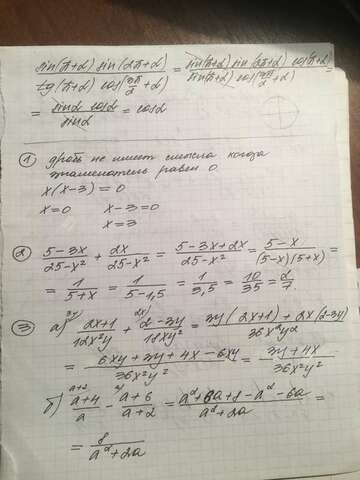 sin(π+α) sin(2π+α) / tg(π+α) cos(3π/2+α) = sin(π+α) sin(2π+α) cos(π+α) / sin(π+α) cos(3π/2+α) =
= sinα cosα / sinα = cosα
① дробь не имеет смысла когда
знаменатель равен 0
x(x-3)=0
x=0 x-3=0
x=3
② 5-3x / 25-x² + 2x / 25-x² = 5-3x+2x / 25-x² = 5-x / (5-x)(5+x) =
= 1 / 5+x = 1 / 5-1,5 = 1 / 3,5 = 10 / 35 = 2 / 7.
③ а) 2x+1 / 12x²y + 2-3y / 18xy² = 3y(2x+1) + 2x(2-3y) / 36x²y²
= 6xy+3y+4x-6xy / 36x²y² = 3y+4x / 36x²y²
б) a+4 / a - a+6 / a+2 = a²+6a+8-a²-6a / a²+2a =
= 8 / a²+2a